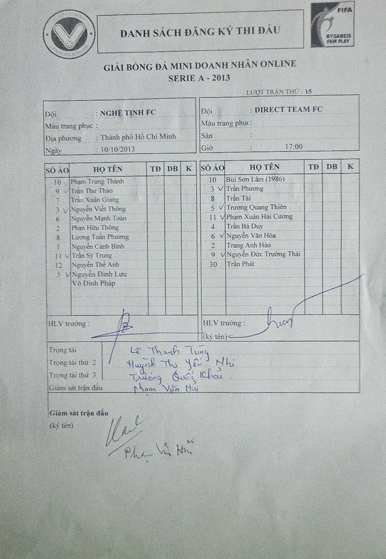 FIFA
MY GAME IS
FAIR PLAY
DANH SÁCH ĐĂNG KÝ THI ĐẤU
GIẢI BÓNG ĐÁ MINI DOANH NHÂN ONLINE
SERIE A - 2013
LƯỢT TRẬN THỨ : 15
Đội : NGHỆ TỊNH FC
Màu trang phục :
Địa phương : Thành phố Hồ Chí Minh
Ngày 10/10/2013
Đội : DIRECT TEAM FC
Màu trang phục :
Sân :
Giờ : 17:00
SỐ ÁO HỌ TÊN TĐ DB K
10 Phạm Trung Thành
9 Trần Thư Thảo
7 Trần Xuân Giang
3 Nguyễn Viết Thông
6 Nguyễn Mạnh Toàn
2 Phan Hữu Thông
8 Lương Tuấn Phương
1 Nguyễn Cảnh Bình
11 Trần Sỹ Trung
12 Nguyễn Thế Anh
5 Nguyễn Đình Lưu
Võ Đình Pháp
SỐ ÁO HỌ TÊN TĐ DB K
10 Bùi Sơn Lâm (1986)
3 Trần Phương
8 Trần Tài
5 Trương Quang Thiên
11 Phạm Xuân Hải Cường
4 Trần Bá Duy
6 Nguyễn Văn Hòa
2 Trang Anh Hào
9 Nguyễn Đức Trường Thái
30 Trần Phát
HLV trưởng :
HLV trưởng :
(ký tên)
Trọng tài Lê Thanh Tùng
Trọng tài thứ 2 Huỳnh Thị Yến Nhi
Trọng tài thứ 3 Trương Quốc Khải
Giám sát trận đấu Phạm Văn Hải
Giám sát trận đấu
(ký tên)